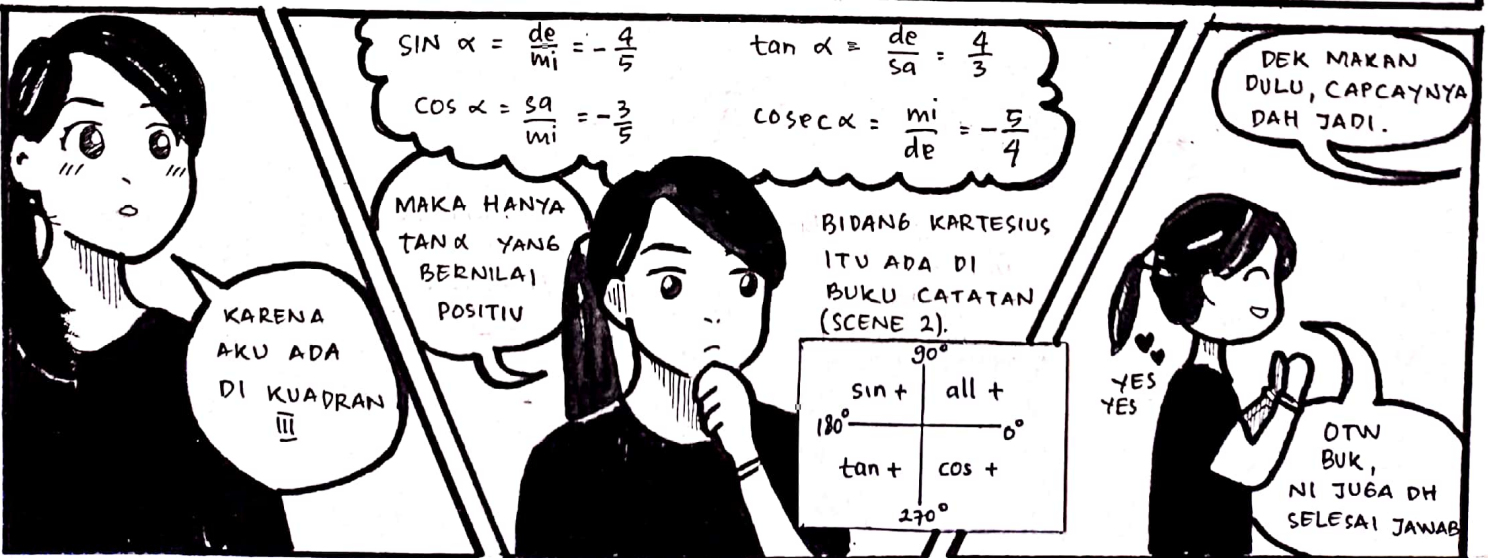 KARENA
AKU ADA
DI KUADRAN
III
SIN α = de/mi = - 4/5
tan α = de/sa = 4/3
COS α = sa/mi = - 3/5
cosec α = mi/de = - 5/4
MAKA HANYA
tan α YANG
BERNILAI
POSITIV
BIDANG KARTESIUS
ITU ADA DI
BUKU CATATAN
(SCENE 2).
90°
sin + all +
180° 0°
tan + cos +
270°
DEK MAKAN
DULU, CAPCAYNYA
DAH JADI.
YES
YES
OTW
BUK,
NI JUGA DH
SELESAI JAWAB